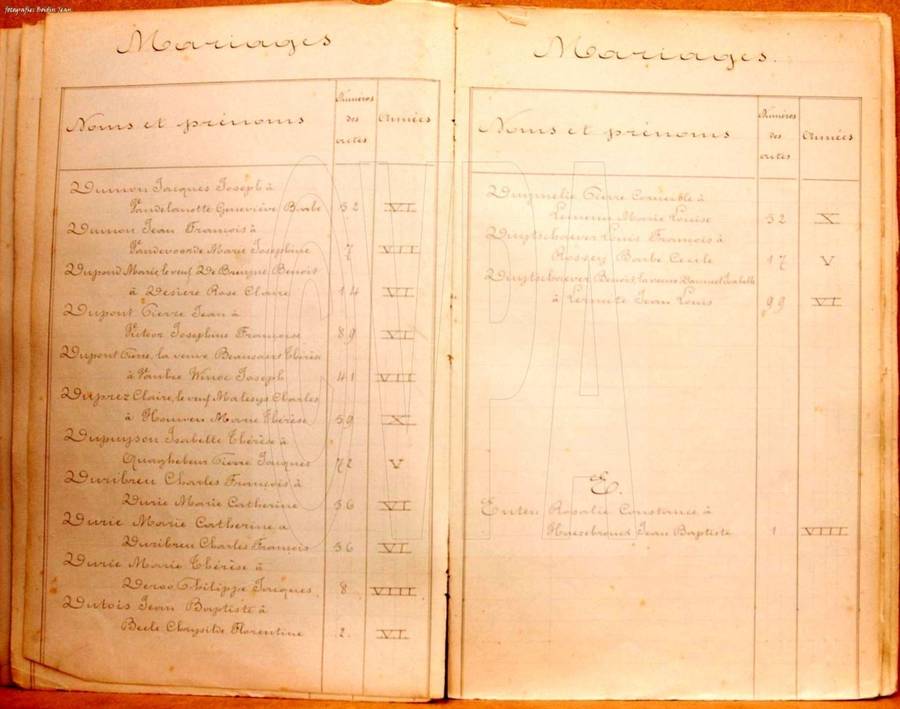 fotografies Boidin Jean
Mariages
Noms et prénoms
Numéros
des
actes
Années
Dumon Jacques Joseph à
Vandelanotte Geneviève Barbe 32 VI
Dumon Jean François à
Vandevoorde Marie Josephine 7 VII
Dupond Marie, le veuf De Bruyne Benoit
à Desiere Rose Claire 14 VI
Dupont Pierre Jean à
Victoor Josephine Françoise 89 VI
Dupont Pierre, la veuve Beausaert Thérèse
à Vanbee Winoc Joseph 41 VII
Duprez Claire, le veuf Malesys Charles
à Houwen Marie Thérèse 59 X
Dupuyson Isabelle Thérèse à
Quaghebeur Pierre Jacques 72 V
Duribreu Charles François à
Durie Marie Catherine 56 VI
Durie Marie Catherine à
Duribreu Charles François 56 VI
Durie Marie Thérèse à
Deroo Philippe Jacques 8 VIII
Dutois Jean Baptiste à
Beele Chrysilde Florentine 2. VI
Mariages.
Noms et prénoms
Numéros
des
actes
Années
Duymelie Pierre Corneille à
Marie Louise 32 X
Duytschaever Louis François à
Rossey Barbe Cecile 17 V
Duytschaever Benoit, la veuve Isabelle
à Jean Louis 99 VI
E.
Enten Rosalie Constance à
Haezebrouck Jean Baptiste 1 VIII
CVPA